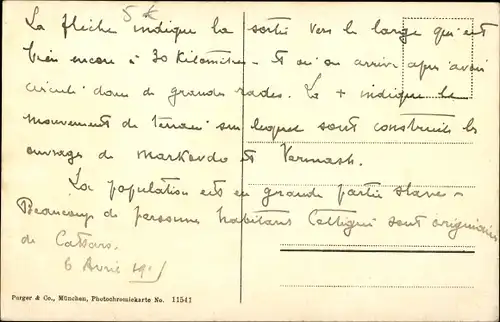 5 k
La flèche indique la sortie vers le large qui est
bien encore à 30 kilomètres - et où on arrive après avoir
circulé dans de grandes rades. La + indique le
mouvement de terrain sur lequel sont construits les
ouvrages de Markovdo et Vermash.
La population est en grande partie slave -
Beaucoup de personnes habitant Cettigné sont originaires
de Cattaro.
6 Avril
Purger & Co., München, Photochromiekarte No. 11541